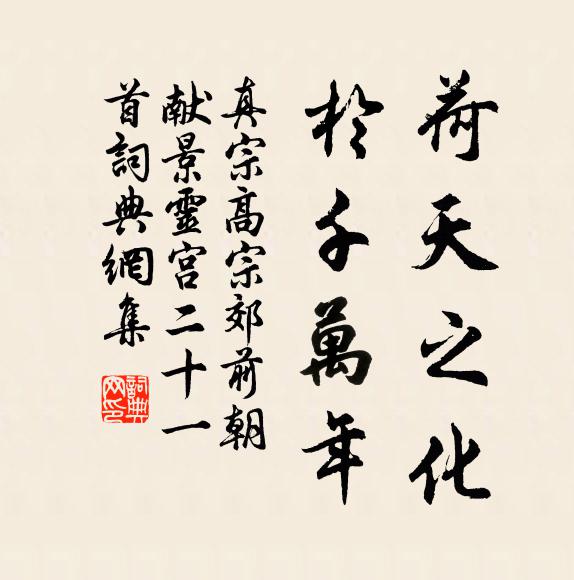 荷天之化
於千萬年
真宗高宗郊前朝
献景靈宮二十一
首詞典網集
詞典网印